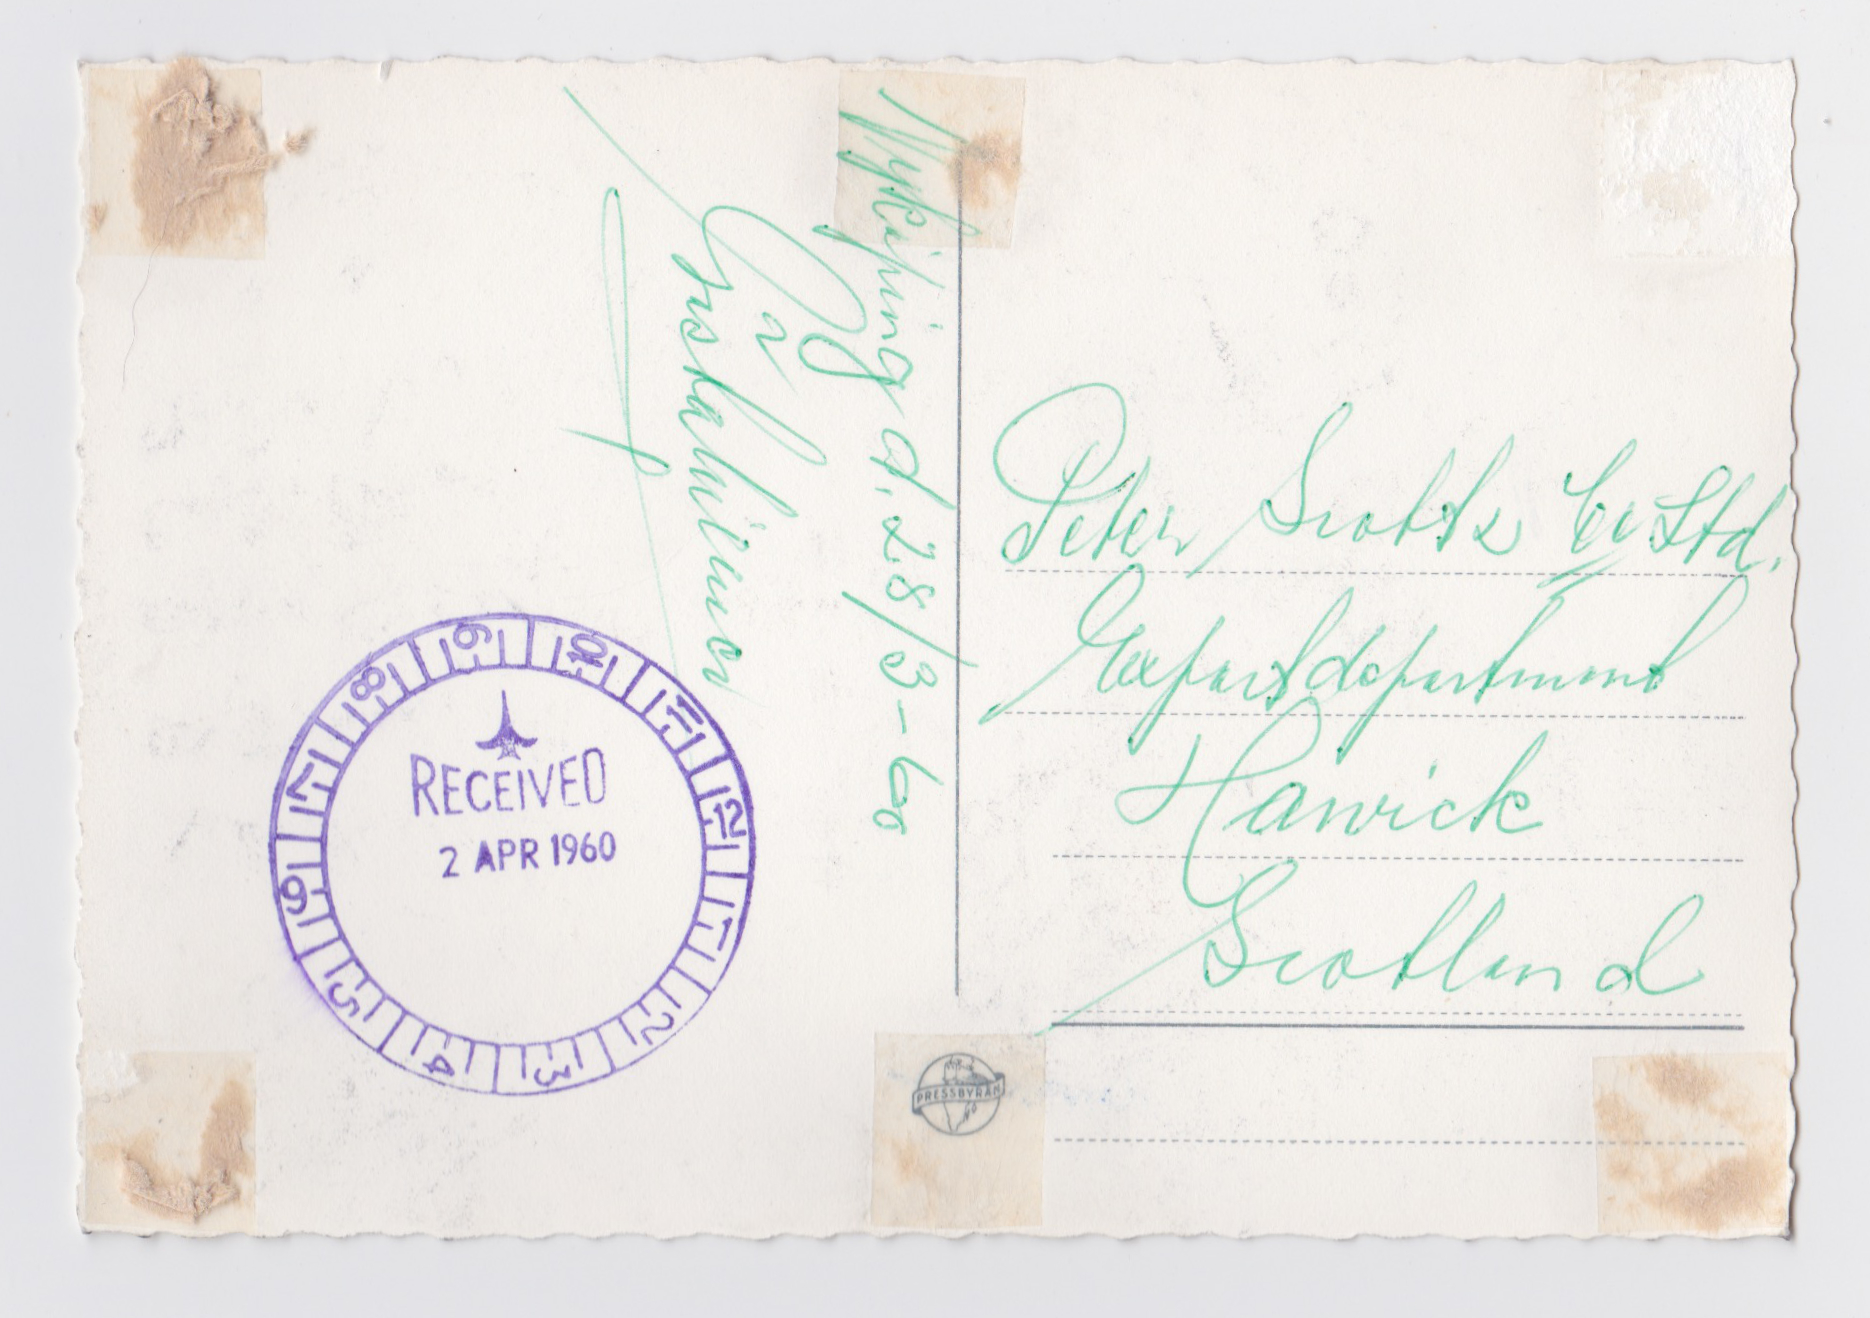 Nyköping d. 28/3-60
RECEIVED
2 APR 1960
9 10 11 12 1 2 3 4 5 6 7 8
Peter Scott & Co Ltd.
Exportdepartment
Hawick
Scotland
PRESSBYRÅN